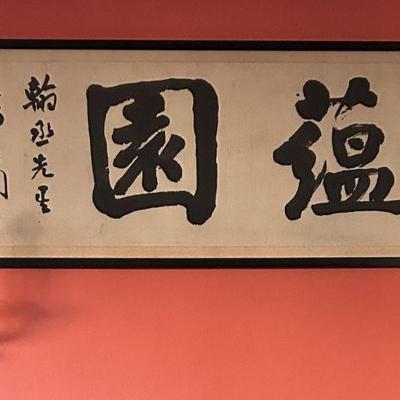 蕴園
翰丞先生